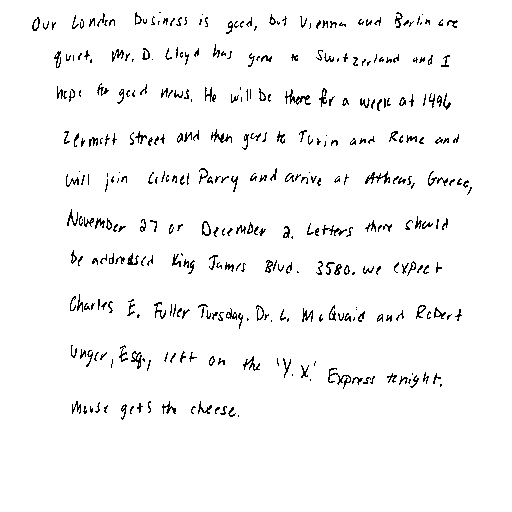 Our London business is good, but Vienna and Berlin are
quiet. Mr. D. Lloyd has gone to Switzerland and I
hope for good news. He will be there for a week at 1496
Zermott Street and then goes to Turin and Rome and
will join Colonel Parry and arrive at Athens, Greece,
November 27 or December 2. Letters there should
be addressed King James Blvd. 3580. We expect
Charles E. Fuller Tuesday. Dr. L. McQuaid and Robert
Unger, Esq., left on the 'Y.X.' Express tonight.
Mouse gets the cheese.